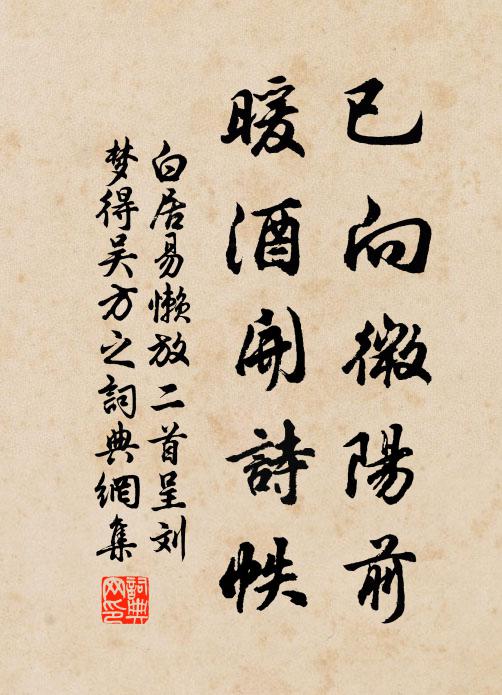 已向微陽前
暖酒開詩帙
白居易懒放二首呈刘
梦得吴方之詞典網集
詞典